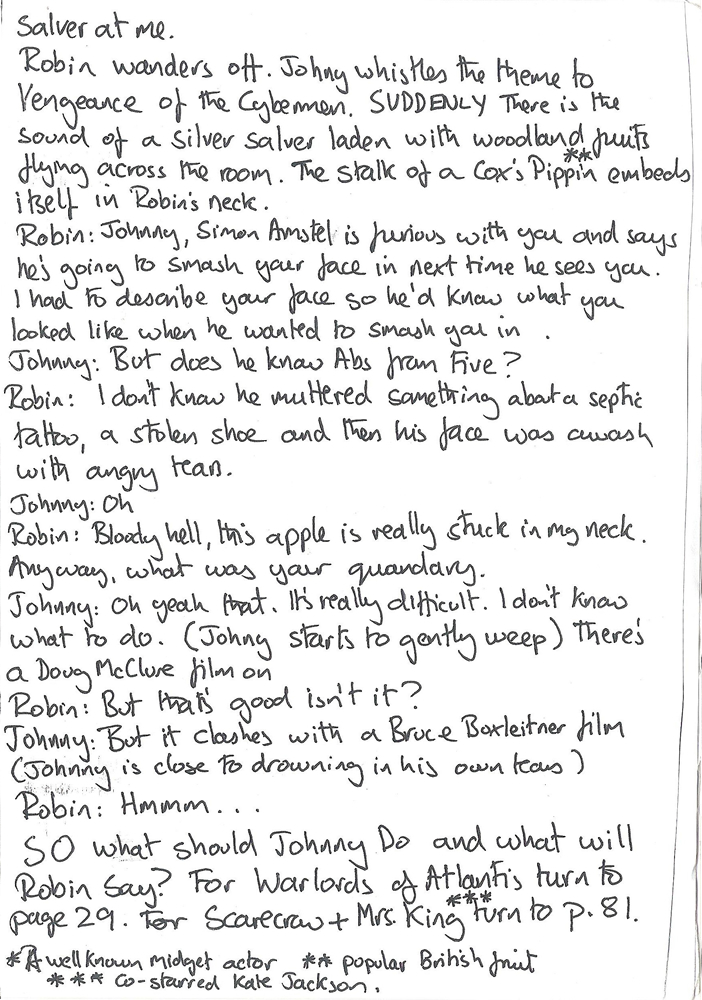 Salver at me.
Robin wanders off. Johny whistles the theme to
Vengeance of the Cybermen. SUDDENLY There is the
sound of a silver salver laden with woodland fruits
flying across the room. The stalk of a Cox's Pippin ** embeds
itself in Robin's neck.
Robin: Johnny, Simon Amstel is furious with you and says
he's going to smash your face in next time he sees you.
I had to describe your face so he'd know what you
looked like when he wanted to smash you in .
Johnny: But does he know Abs from Five?
Robin: I don't know he muttered something about a septic
tattoo, a stolen shoe and then his face was awash
with angry tears.
Johnny: Oh
Robin: Bloody hell, this apple is really stuck in my neck.
Anyway, what was your quandary.
Johnny: Oh yeah that. It's really difficult. I don't know
what to do. (Johny starts to gently weep) There's
a Doug McClure film on
Robin: But that's good isn't it?
Johnny: But it clashes with a Bruce Boxleitner film
(Johnny is close to drowning in his own tears)
Robin: Hmmm...
SO what should Johnny Do and what will
Robin Say? For Warlords of Atlantis turn to
page 29. For Scarecrow + Mrs. King *** turn to p. 81.
* A well known midget actor ** popular British fruit
*** Co-starred Kate Jackson.